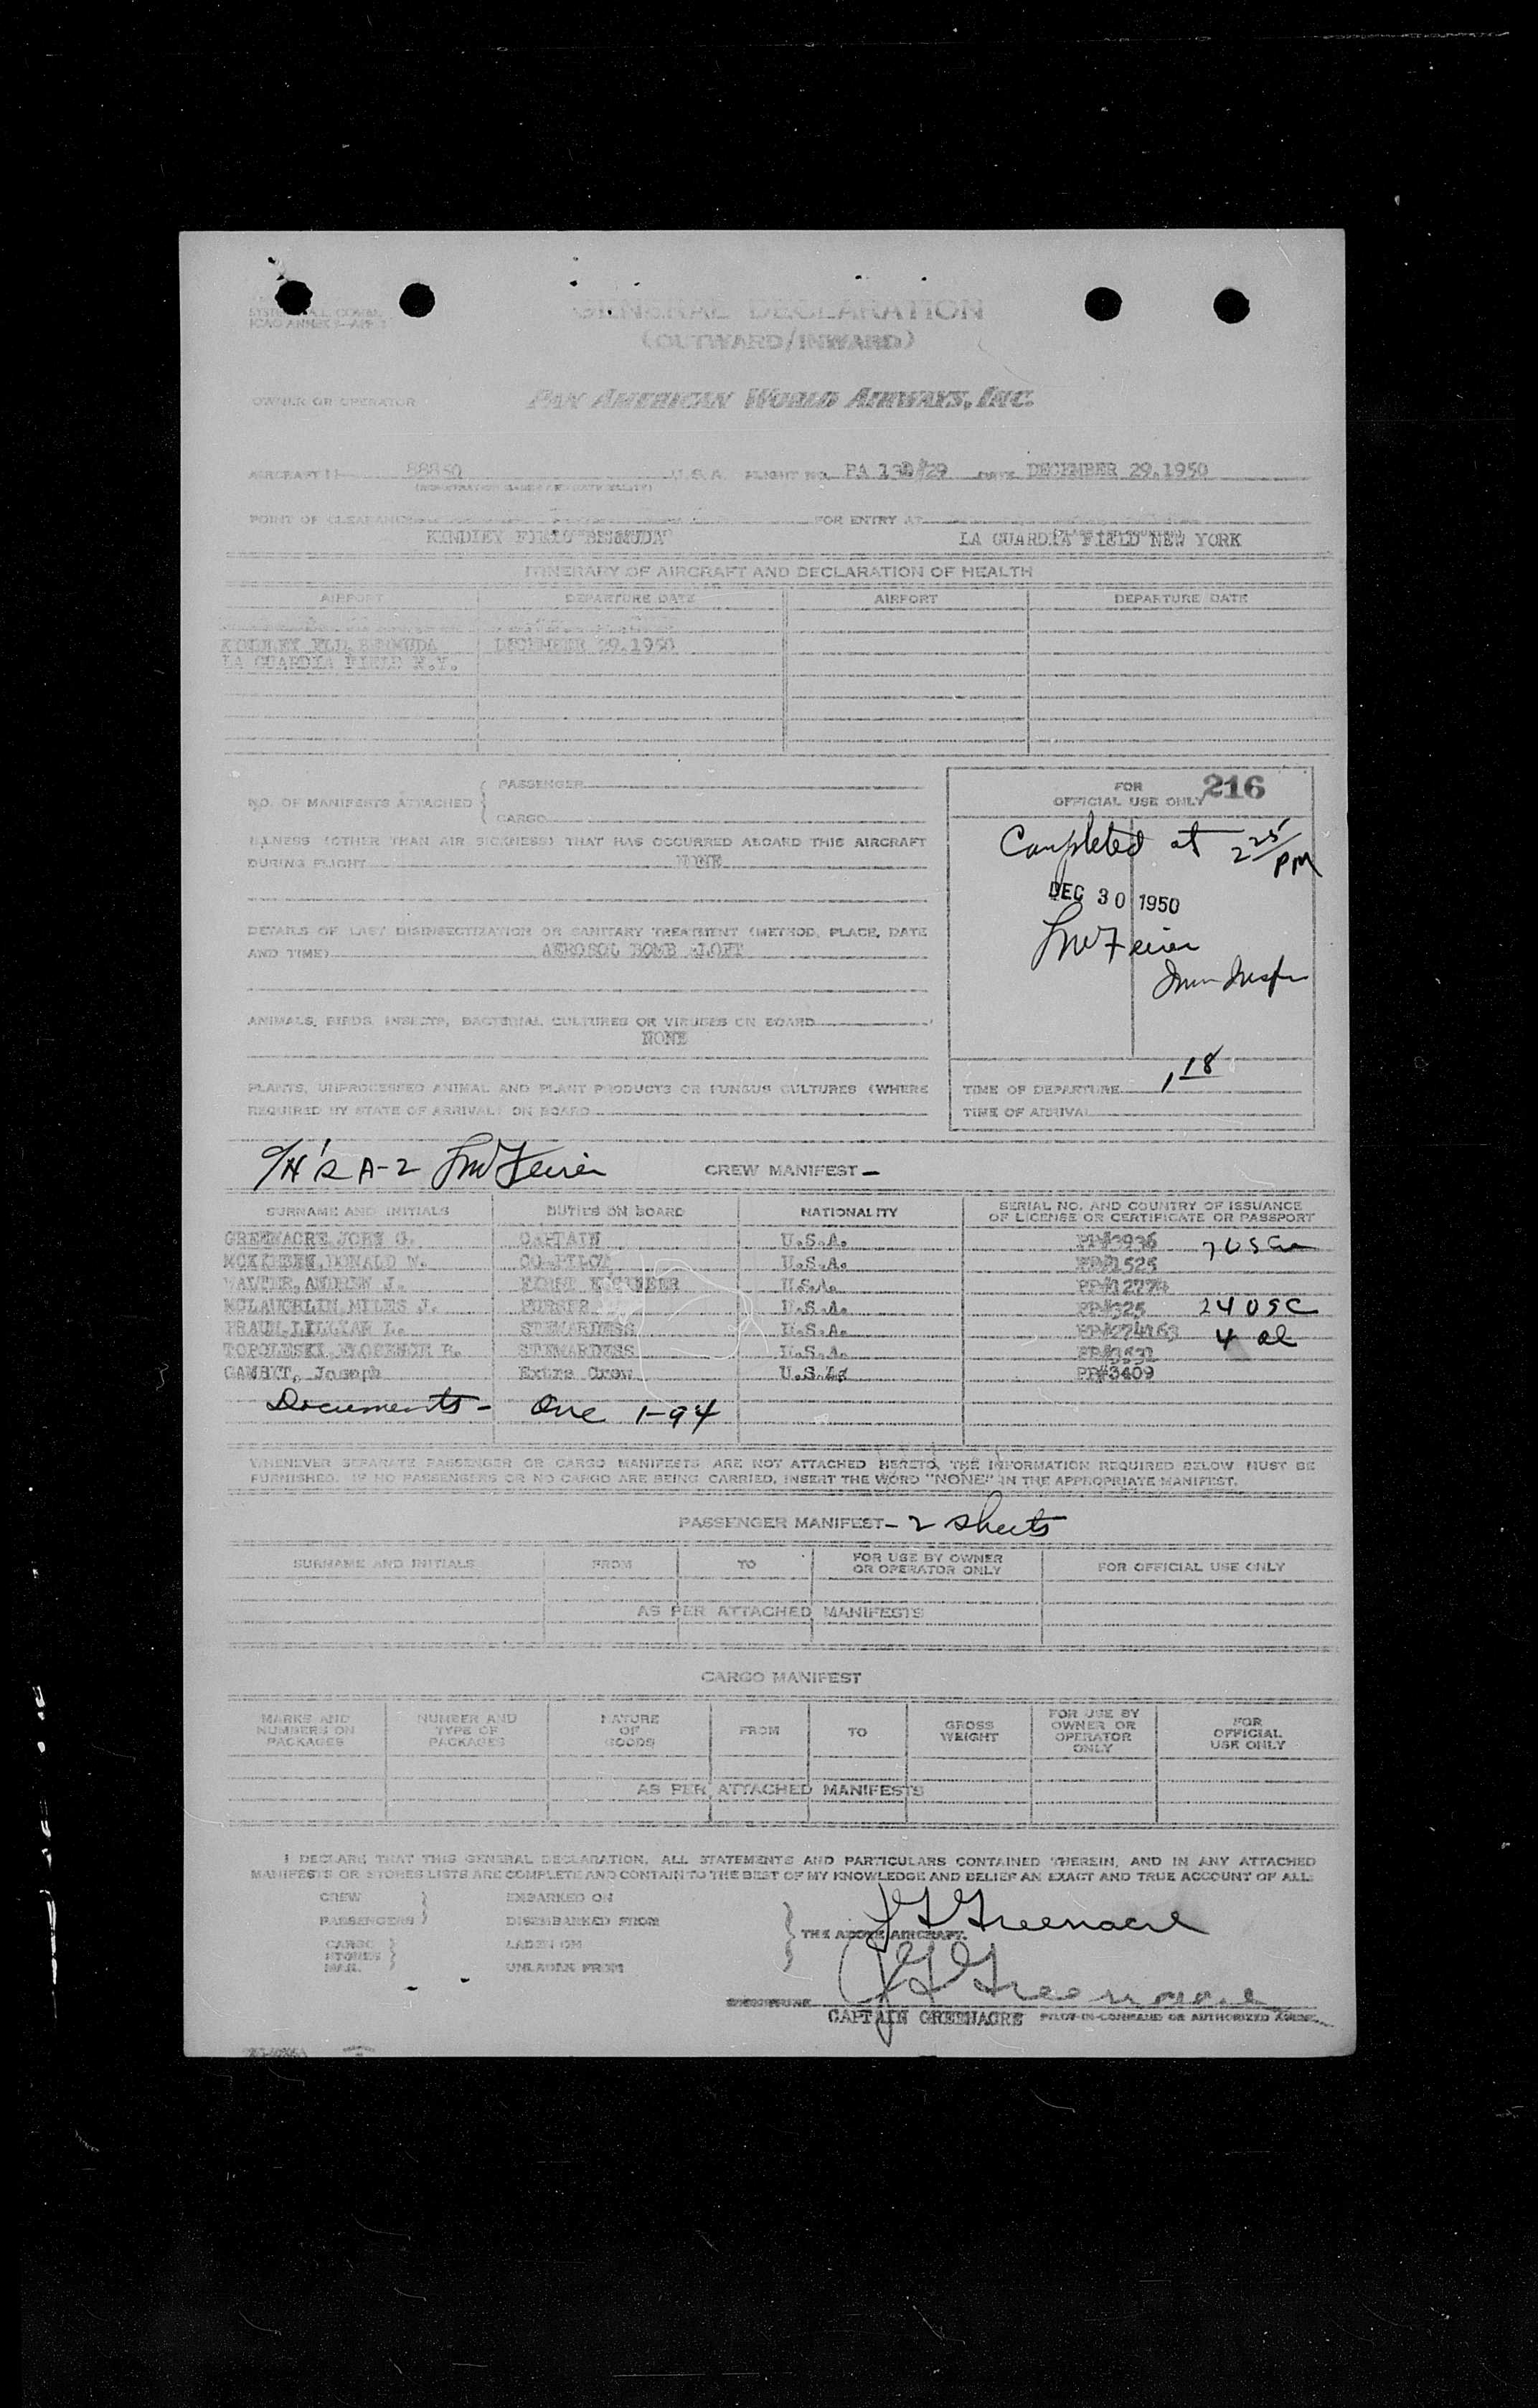 ICAO ANNEX 9—APP. 1
GENERAL DECLARATION
(OUTWARD/INWARD)
OWNER OR OPERATOR PAN AMERICAN WORLD AIRWAYS, INC.
AIRCRAFT 88850 U.S.A. FLIGHT NO. PA 131#29 DATE DECEMBER 29.1950
POINT OF CLEARANCE FOR ENTRY AT
KINDLEY FIELD BERMUDA LA GUARDIA FIELD NEW YORK
ITINERARY OF AIRCRAFT AND DECLARATION OF HEALTH
AIRPORT DEPARTURE DATE AIRPORT DEPARTURE DATE
KINDLEY FLD. BERMUDA DECEMBER 29.1950
LA GUARDIA FIELD N.Y.
NO. OF MANIFESTS ATTACHED { PASSENGER
CARGO
FOR OFFICIAL USE ONLY 216
ILLNESS (OTHER THAN AIR SICKNESS) THAT HAS OCCURRED ABOARD THIS AIRCRAFT
DURING FLIGHT NONE
Completed at 2 25/PM
DEC 30 1950
DETAILS OF LAST DISINSECTIZATION OR SANITARY TREATMENT (METHOD, PLACE, DATE
AND TIME) AEROSOL BOMB ALOFT
ANIMALS, BIRDS, INSECTS, BACTERIAL CULTURES OR VIRUSES ON BOARD
NONE
PLANTS, UNPROCESSED ANIMAL AND PLANT PRODUCTS OR FUNGUS CULTURES (WHERE
REQUIRED BY STATE OF ARRIVAL) ON BOARD
TIME OF DEPARTURE 1 18
TIME OF ARRIVAL
A-2 CREW MANIFEST —
SURNAME AND INITIALS DUTIES ON BOARD NATIONALITY SERIAL NO. AND COUNTRY OF ISSUANCE OF LICENSE OR CERTIFICATE OR PASSPORT
GREENACRE, JOHN G. CAPTAIN U.S.A. PP#3936 7 USC
DONALD W. CO-PILOT U.S.A. PP#1525
WALTER, ANDREW J. ENGINEER U.S.A.
MCLAUGHLIN, MILES J. PURSER U.S.A. PP#325 24 USC
LILLIAN L. STEWARDESS U.S.A. PP#274163 4 al
TOPOLESKI, FLORENCE R. STEWARDESS U.S.A.
Joseph Extra Crew U.S.A. PP#3409
Documents - One 1-94
WHENEVER SEPARATE PASSENGER OR CARGO MANIFESTS ARE NOT ATTACHED HERETO, THE INFORMATION REQUIRED BELOW MUST BE
FURNISHED. IF NO PASSENGERS OR NO CARGO ARE BEING CARRIED, INSERT THE WORD "NONE" IN THE APPROPRIATE MANIFEST.
PASSENGER MANIFEST - 2 sheets
SURNAME AND INITIALS FROM TO FOR USE BY OWNER OR OPERATOR ONLY FOR OFFICIAL USE ONLY
AS PER ATTACHED MANIFESTS
CARGO MANIFEST
MARKS AND NUMBERS ON PACKAGES NUMBER AND TYPE OF PACKAGES NATURE OF GOODS FROM TO GROSS WEIGHT FOR USE BY OWNER OR OPERATOR ONLY FOR OFFICIAL USE ONLY
AS PER ATTACHED MANIFESTS
I DECLARE THAT THIS GENERAL DECLARATION, ALL STATEMENTS AND PARTICULARS CONTAINED THEREIN, AND IN ANY ATTACHED
MANIFESTS OR STORES LISTS ARE COMPLETE AND CONTAIN TO THE BEST OF MY KNOWLEDGE AND BELIEF AN EXACT AND TRUE ACCOUNT OF ALL:
CREW EMBARKED ON
PASSENGERS DISEMBARKED FROM
JG Greenacre
THE ABOVE AIRCRAFT.
CARGO LADEN ON
STORES
MAIL UNLADEN FROM
JG Greenacre
SIGNATURE
CAPTAIN GREENACRE PILOT-IN-COMMAND OR AUTHORIZED AGENT